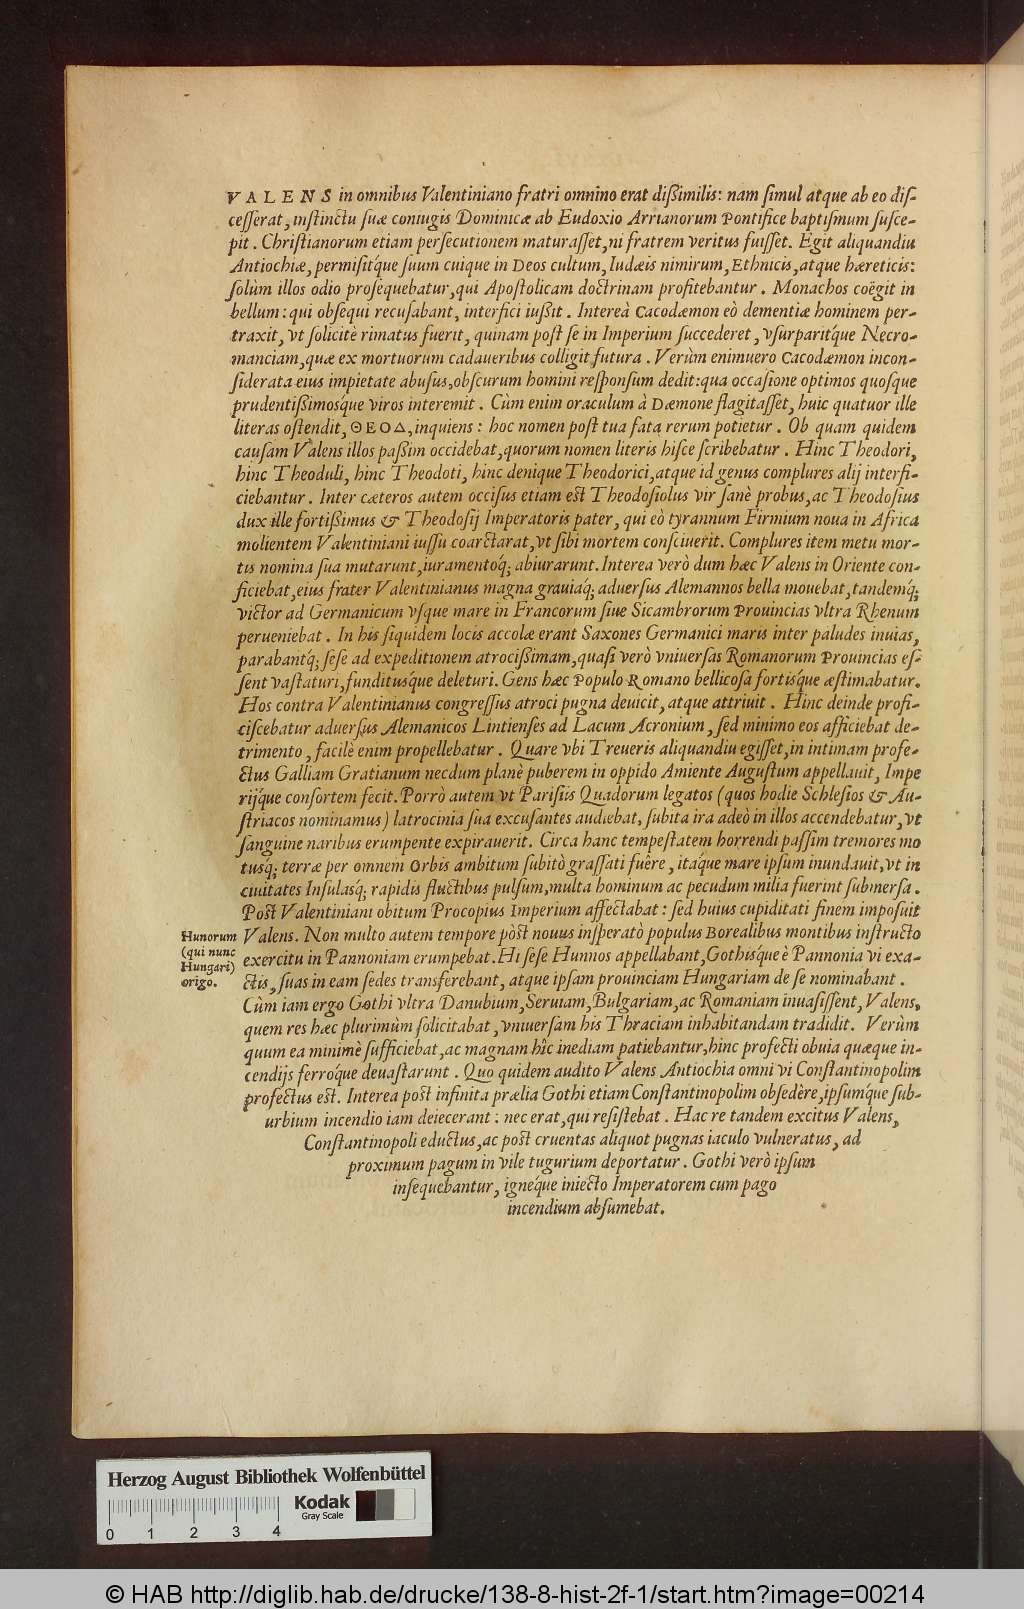 VALENS in omnibus Valentiniano fratri omnino erat dißimilis: nam simul atque ab eo dis-
cesserat, instinctu suæ coniugis Dominicæ ab Eudoxio Arrianorum Pontifice baptismum susce-
pit. Christianorum etiam persecutionem maturasset, ni fratrem veritus fuisset. Egit aliquandiu
Antiochiæ, permisitq́ue suum cuique in Deos cultum, Iudæis nimirum, Ethnicis, atque hæreticis:
solùm illos odio prosequebatur, qui Apostolicam doctrinam profitebantur. Monachos coëgit in
bellum: qui obsequi recusabant, interfici iussit. Intereà Cacodæmon eò dementiæ hominem per-
traxit, vt solicitè rimatus fuerit, quinam post se in Imperium succederet, vsurparitq́ue Necro-
manciam, quæ ex mortuorum cadaueribus colligit futura. Verùm enimuero Cacodæmon incon-
siderata eius impietate abusus, obscurum homini responsum dedit: qua occasione optimos quosque
prudentißimosq́ue viros interemit. Cùm enim oraculum à Dæmone flagitasset, huic quatuor ille
literas ostendit, ΘΕΟΔ, inquiens: hoc nomen post tua fata rerum potietur. Ob quam quidem
causam Valens illos passim occidebat, quorum nomen literis hisce scribebatur. Hinc Theodori,
hinc Theoduli, hinc Theodoti, hinc denique Theodorici, atque id genus complures alij interfi-
ciebantur. Inter cæteros autem occisus etiam est Theodosiolus vir sanè probus, ac Theodosius
dux ille fortißimus & Theodosij Imperatoris pater, qui eò tyrannum Firmium noua in Africa
molientem Valentiniani iussu coarctarat, vt sibi mortem consciuerit. Complures item metu mor-
tis nomina sua mutarunt, iuramentoq́; abiurarunt. Interea verò dum hæc Valens in Oriente con-
ficiebat, eius frater Valentinianus magna grauiaq́; aduersus Alemannos bella mouebat, tandemq́;
victor ad Germanicum vsque mare in Francorum siue Sicambrorum Prouincias vltra Rhenum
perueniebat. In his siquidem locis accolæ erant Saxones Germanici maris inter paludes inuias,
parabantq́; sese ad expeditionem atrocißimam, quasi verò vniuersas Romanorum Prouincias es-
sent vastaturi, funditusque deleturi. Gens hæc Populo Romano bellicosa fortisq́ue æstimabatur.
Hos contra Valentinianus congressus atroci pugna deuicit, atque attriuit. Hinc deinde profi-
ciscebatur aduersus Alemanicos Lintienses ad Lacum Acronium, sed minimo eos afficiebat de-
trimento, facilè enim propellebatur. Quare vbi Treueris aliquandiu egisset, in intimam profe-
ctus Galliam Gratianum necdum planè puberem in oppido Amiente Augustum appellauit, Impe
rijq́ue consortem fecit. Porrò autem vt Parisiis Quadorum legatos (quos hodie Schlesios & Au-
striacos nominamus) latrocinia sua excusantes audiebat, subita ira adeò in illos accendebatur, vt
sanguine naribus erumpente expirauerit. Circa hanc tempestatem horrendi passim tremores mo
tusq́; terræ per omnem Orbis ambitum subitò grassati fuêre, itaq́ue mare ipsum inundauit, vt in
ciuitates Insulasq́; rapidis fluctibus pulsum, multa hominum ac pecudum milia fuerint submersa.
Post Valentiniani obitum Procopius Imperium affectabat: sed huius cupiditati finem imposuit
Valens. Non multo autem tempore pòst nouus insperatò populus Borealibus montibus instructo
exercitu in Pannoniam erumpebat. Hi sese Hunnos appellabant, Gothisq́ue è Pannonia vi exa-
ctis, suas in eam sedes transferebant, atque ipsam prouinciam Hungariam de se nominabant.
Hunorum
(qui nunc
Hungari)
origo.
Cùm iam ergo Gothi vltra Danubium, Seruiam, Bulgariam, ac Romaniam inuasissent, Valens,
quem res hæc plurimùm solicitabat, vniuersam his Thraciam inhabitandam tradidit. Verùm
quum ea minimè sufficiebat, ac magnam hîc inediam patiebantur, hinc profecti obuia quæque in-
cendijs ferroq́ue deuastarunt. Quo quidem audito Valens Antiochia omni vi Constantinopolim
profectus est. Interea post infinita prælia Gothi etiam Constantinopolim obsedère, ipsumq́ue sub-
urbium incendio iam deiecerant: nec erat, qui resistebat. Hac re tandem excitus Valens,
Constantinopoli eductus, ac post cruentas aliquot pugnas iaculo vulneratus, ad
proximum pagum in vile tugurium deportatur. Gothi verò ipsum
insequebantur, igneq́ue iniecto Imperatorem cum pago
incendium absumebat.
Herzog August Bibliothek Wolfenbüttel
Kodak
Gray Scale
0 1 2 3 4
© HAB http://diglib.hab.de/drucke/138-8-hist-2f-1/start.htm?image=00214